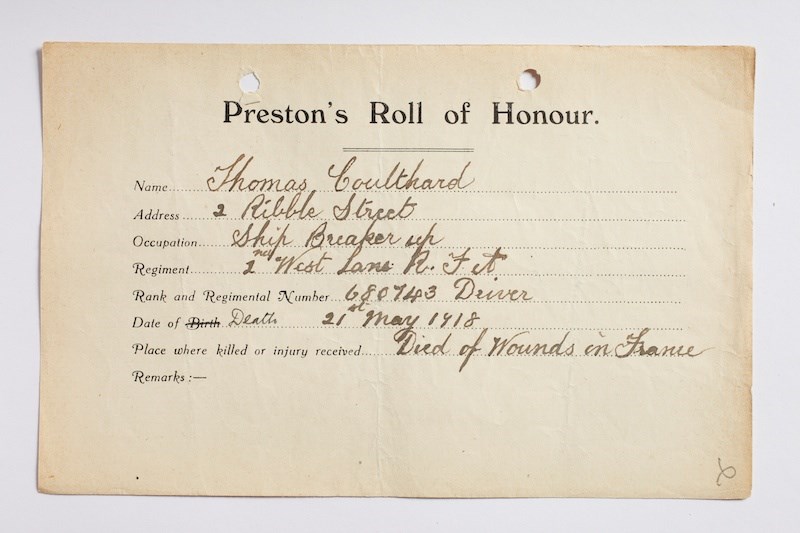 Preston's Roll of Honour.
Name Thomas Coulthard
Address 2 Ribble Street
Occupation Ship Breaker up
Regiment 2nd West Lanc R. F A
Rank and Regimental Number 680743 Driver
Date of Birth Death 21st May 1918
Place where killed or injury received Died of Wounds in France
Remarks :—